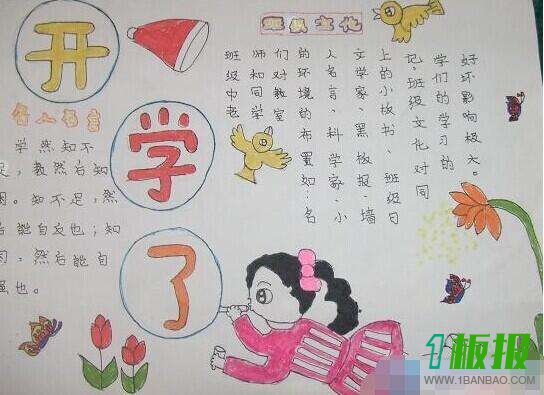 开
学
了
名人名言
学然知不
足，教然后知
困。知不足，然
后能自文也；知
困，然后能自
强也。
班级文化
班级中老
师和同学
们对教室
的环境的布置如：名
人名言、科学家、小
文学家、黑板报、墙
上的小板书、班级日
记.班级文化对同
学们的学习的
好坏影响极大。
1板报
WWW.1BANBAO.COM